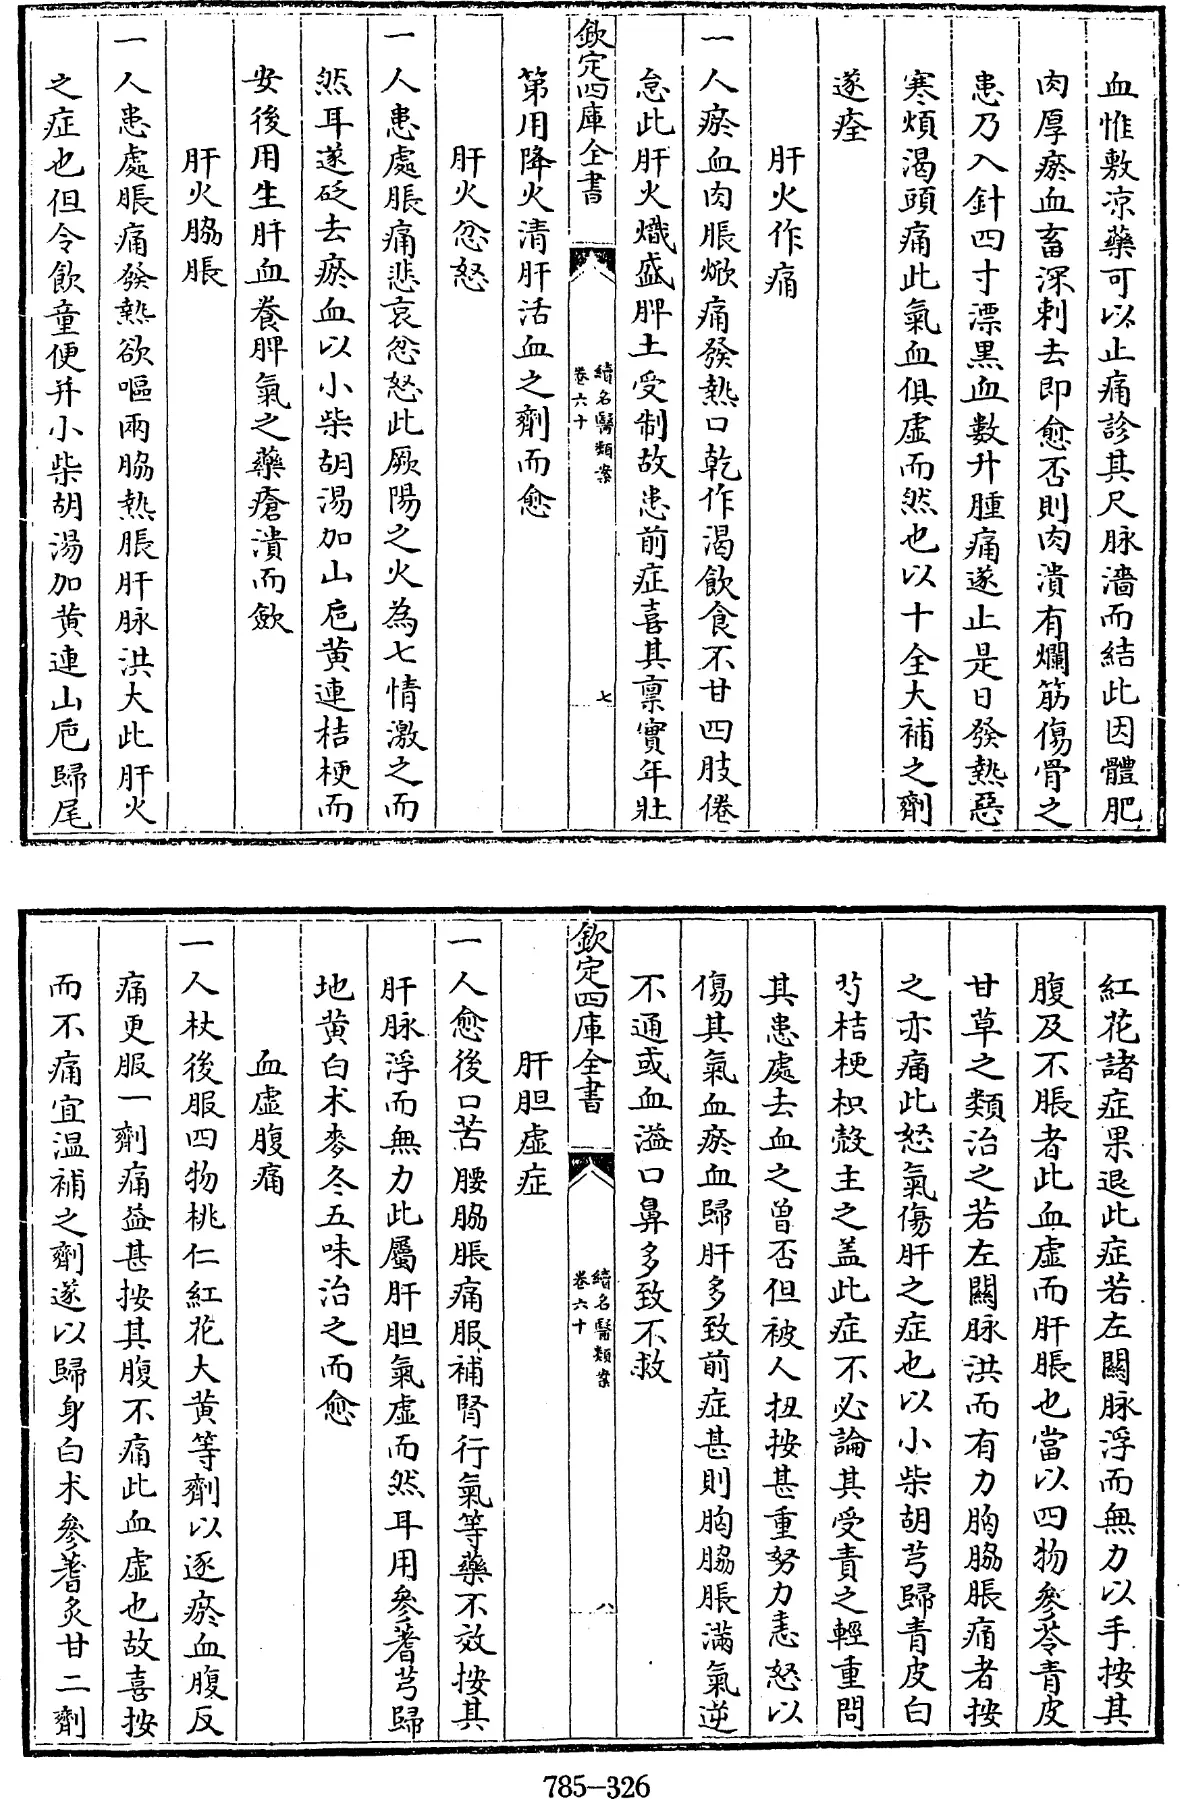 血惟敷凉藥可以止痛診其尺脉濇而結此因體肥
肉厚瘀血畜深刺去即愈否則肉潰有爛筋傷骨之
患乃入針四寸漂黑血數升腫痛遂止是日發熱惡
寒煩渴頭痛此氣血俱虛而然也以十全大補之劑
遂痊
肝火作痛
一人瘀血肉脹焮痛發熱口乾作渴飲食不甘四肢倦
怠此肝火熾盛脾土受制故患前症喜其禀實年壯
欽定四庫全書
續名醫類案
卷六十
七
第用降火清肝活血之劑而愈
肝火忿怒
一人患處脹痛悲哀忿怒此厥陽之火為七情激之而
然耳遂砭去瘀血以小柴胡湯加山巵黄連桔梗而
安後用生肝血養脾氣之藥瘡潰而斂
肝火脇脹
一人患處脹痛發熱欲嘔兩脇熱脹肝脉洪大此肝火
之症也但令飲童便并小柴胡湯加黄連山巵歸尾
紅花諸症果退此症若左關脉浮而無力以手按其
腹及不脹者此血虛而肝脹也當以四物參苓青皮
甘草之類治之若左關脉洪而有力胸脇脹痛者按
之亦痛此怒氣傷肝之症也以小柴胡芎歸青皮白
芍桔梗枳殼主之盖此症不必論其受責之輕重問
其患處去血之曾否但被人扭按甚重努力恚怒以
傷其氣血瘀血歸肝多致前症甚則胸脇脹滿氣逆
不通或血溢口鼻多致不救
欽定四庫全書
續名醫類案
卷六十
八
肝胆虛症
一人愈後口苦腰脇脹痛服補腎行氣等藥不效按其
肝脉浮而無力此屬肝胆氣虛而然耳用參蓍芎歸
地黄白术麥冬五味治之而愈
血虛腹痛
一人杖後服四物桃仁紅花大黄等劑以逐瘀血腹反
痛更服一劑痛益甚按其腹不痛此血虛也故喜按
而不痛宜温補之劑遂以歸身白术參蓍炙甘二劑
785-326